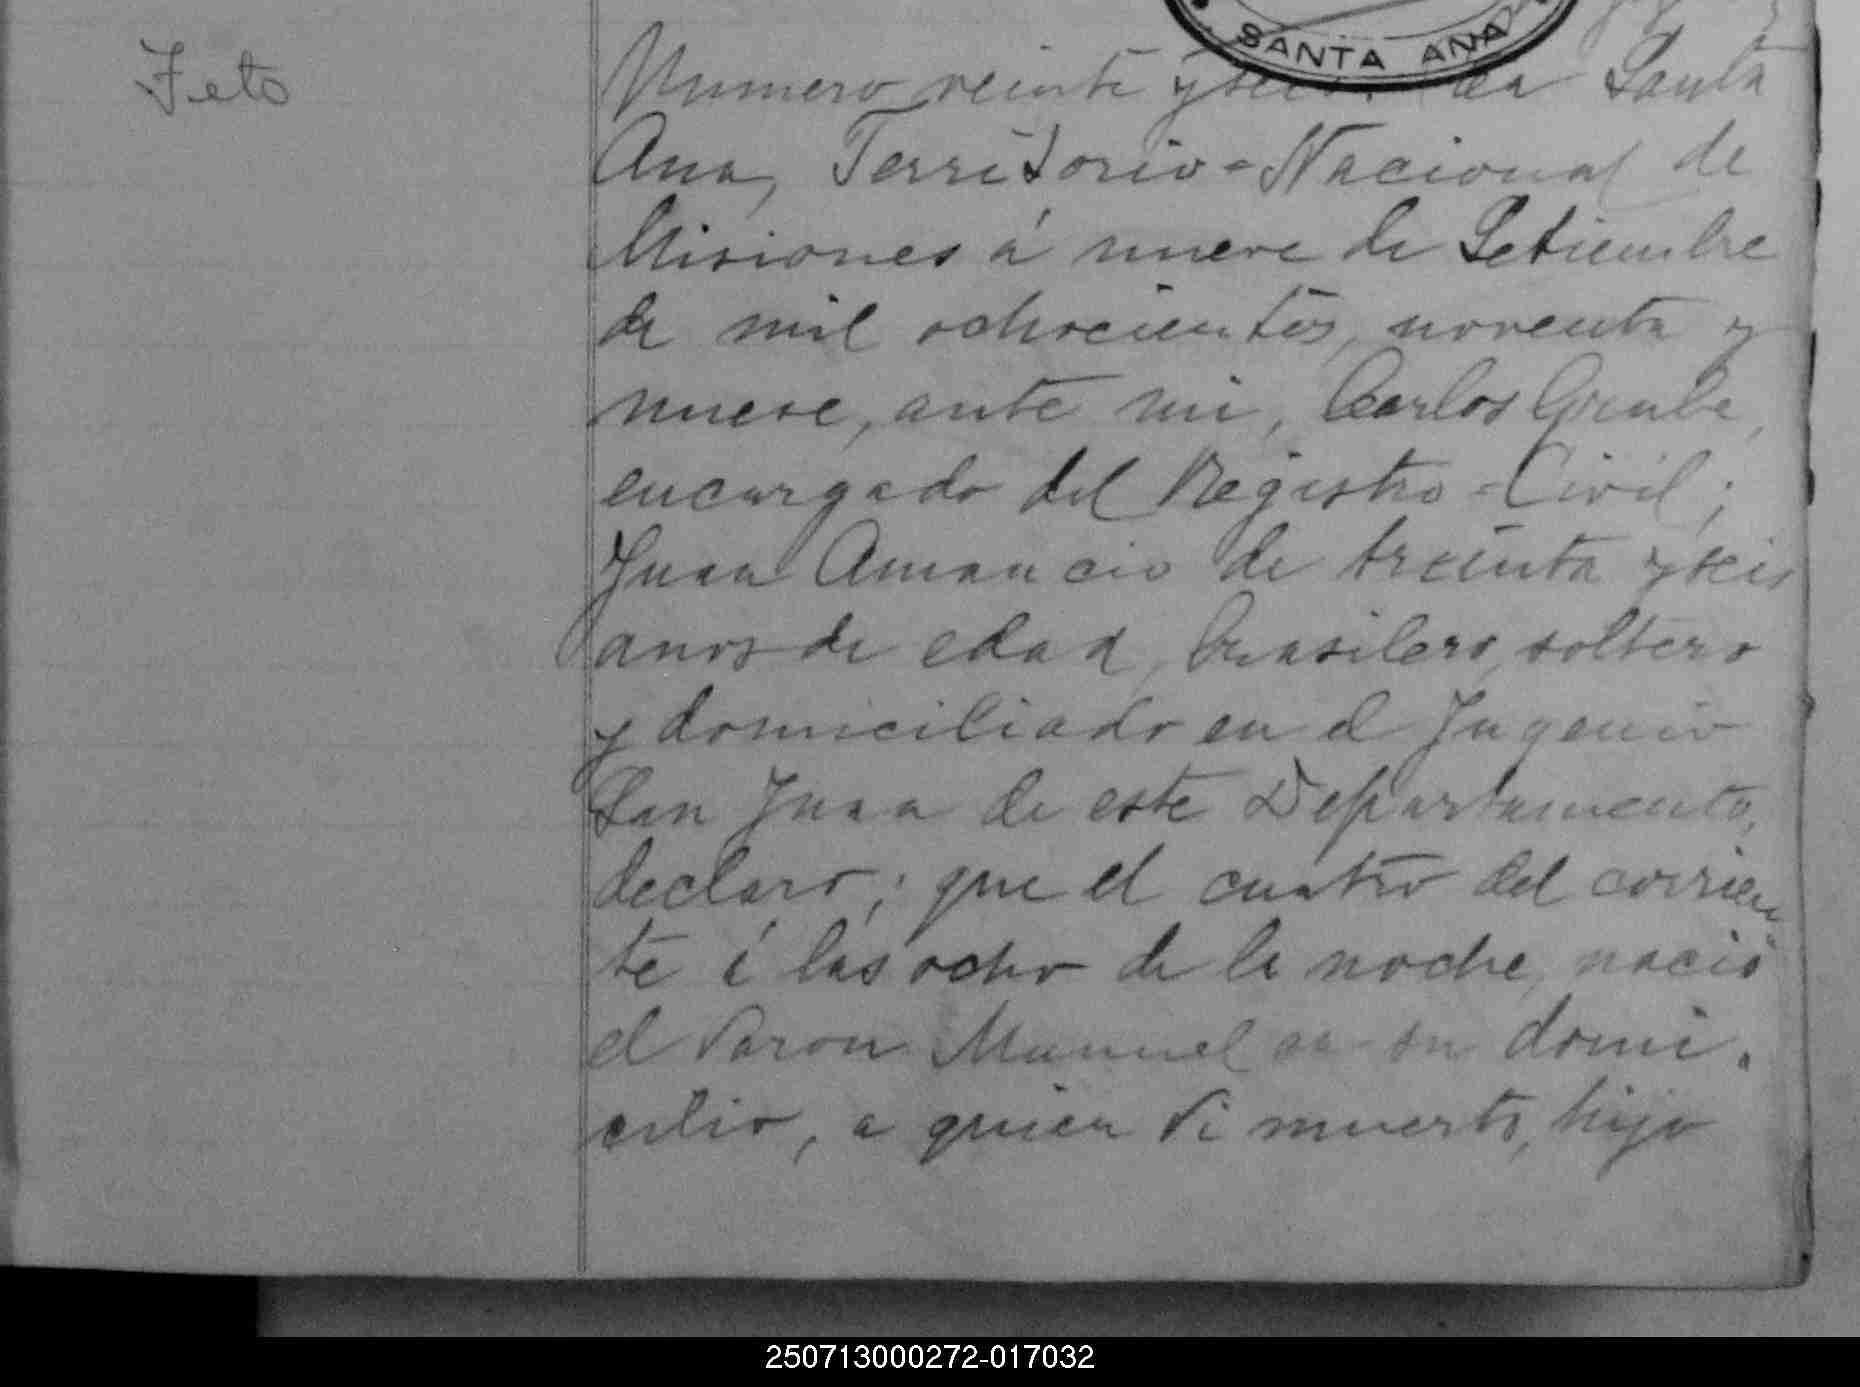 SANTA ANA
Feto
Numero veinte y seis. En Santa
Ana, Territorio=Nacional de
Misiones á nueve de Setiembre
de mil ochocientos, noventa y
nueve, ante mi, Carlos Grube,
encargado del Registro=Civil;
Juan Amancio de treinta y seis
anos de edad, brasilero, soltero
y domiciliado en el Ingenio
San Juan de este Departamento,
declaro; que el cuatro del corrien
te á las ocho de la noche, nació
el varon Manuel en su domi.
cilio, a quien vi muerto, hijo
250713000272-017032